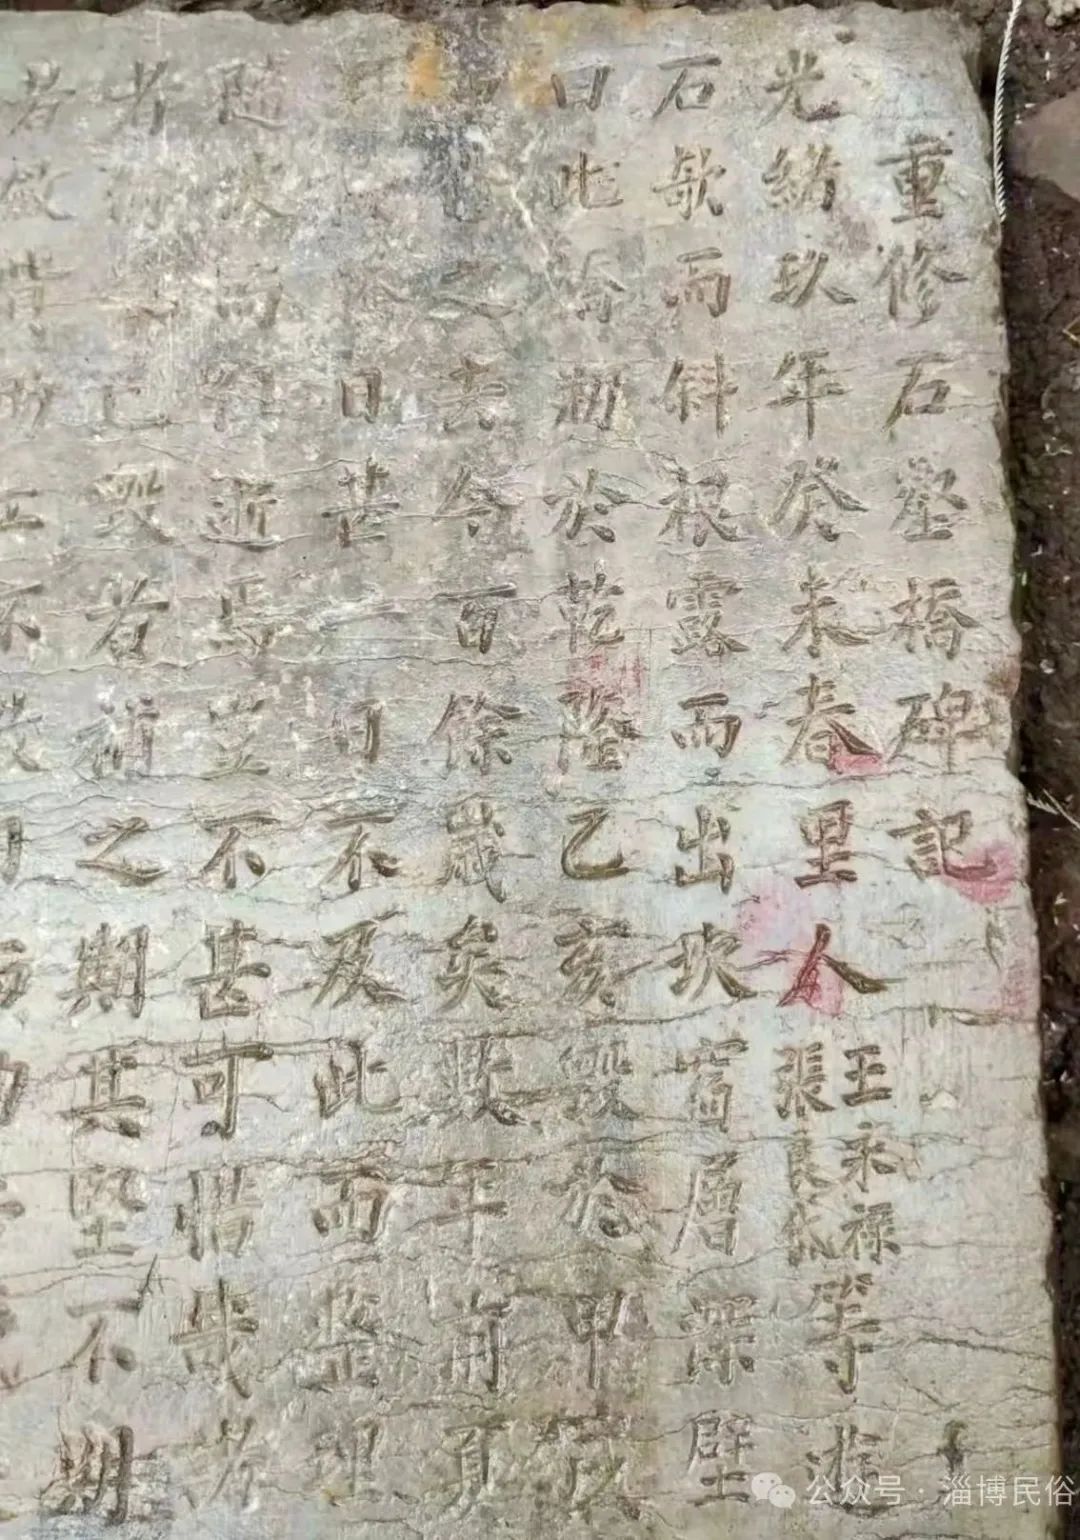 重修石壑橋碑記
光緒玖年癸未春里人王永禄張長等
石欹而斜根露而出坎窞層深壁
曰此橋剏於乾隆乙亥毀於甲戌
之去今百餘歲矣歟于前夏
日甚一日不及此而
隨而逝焉豈不甚可惜哉者
者已毀者補之期其堅不期
者
公众号·淄博民俗